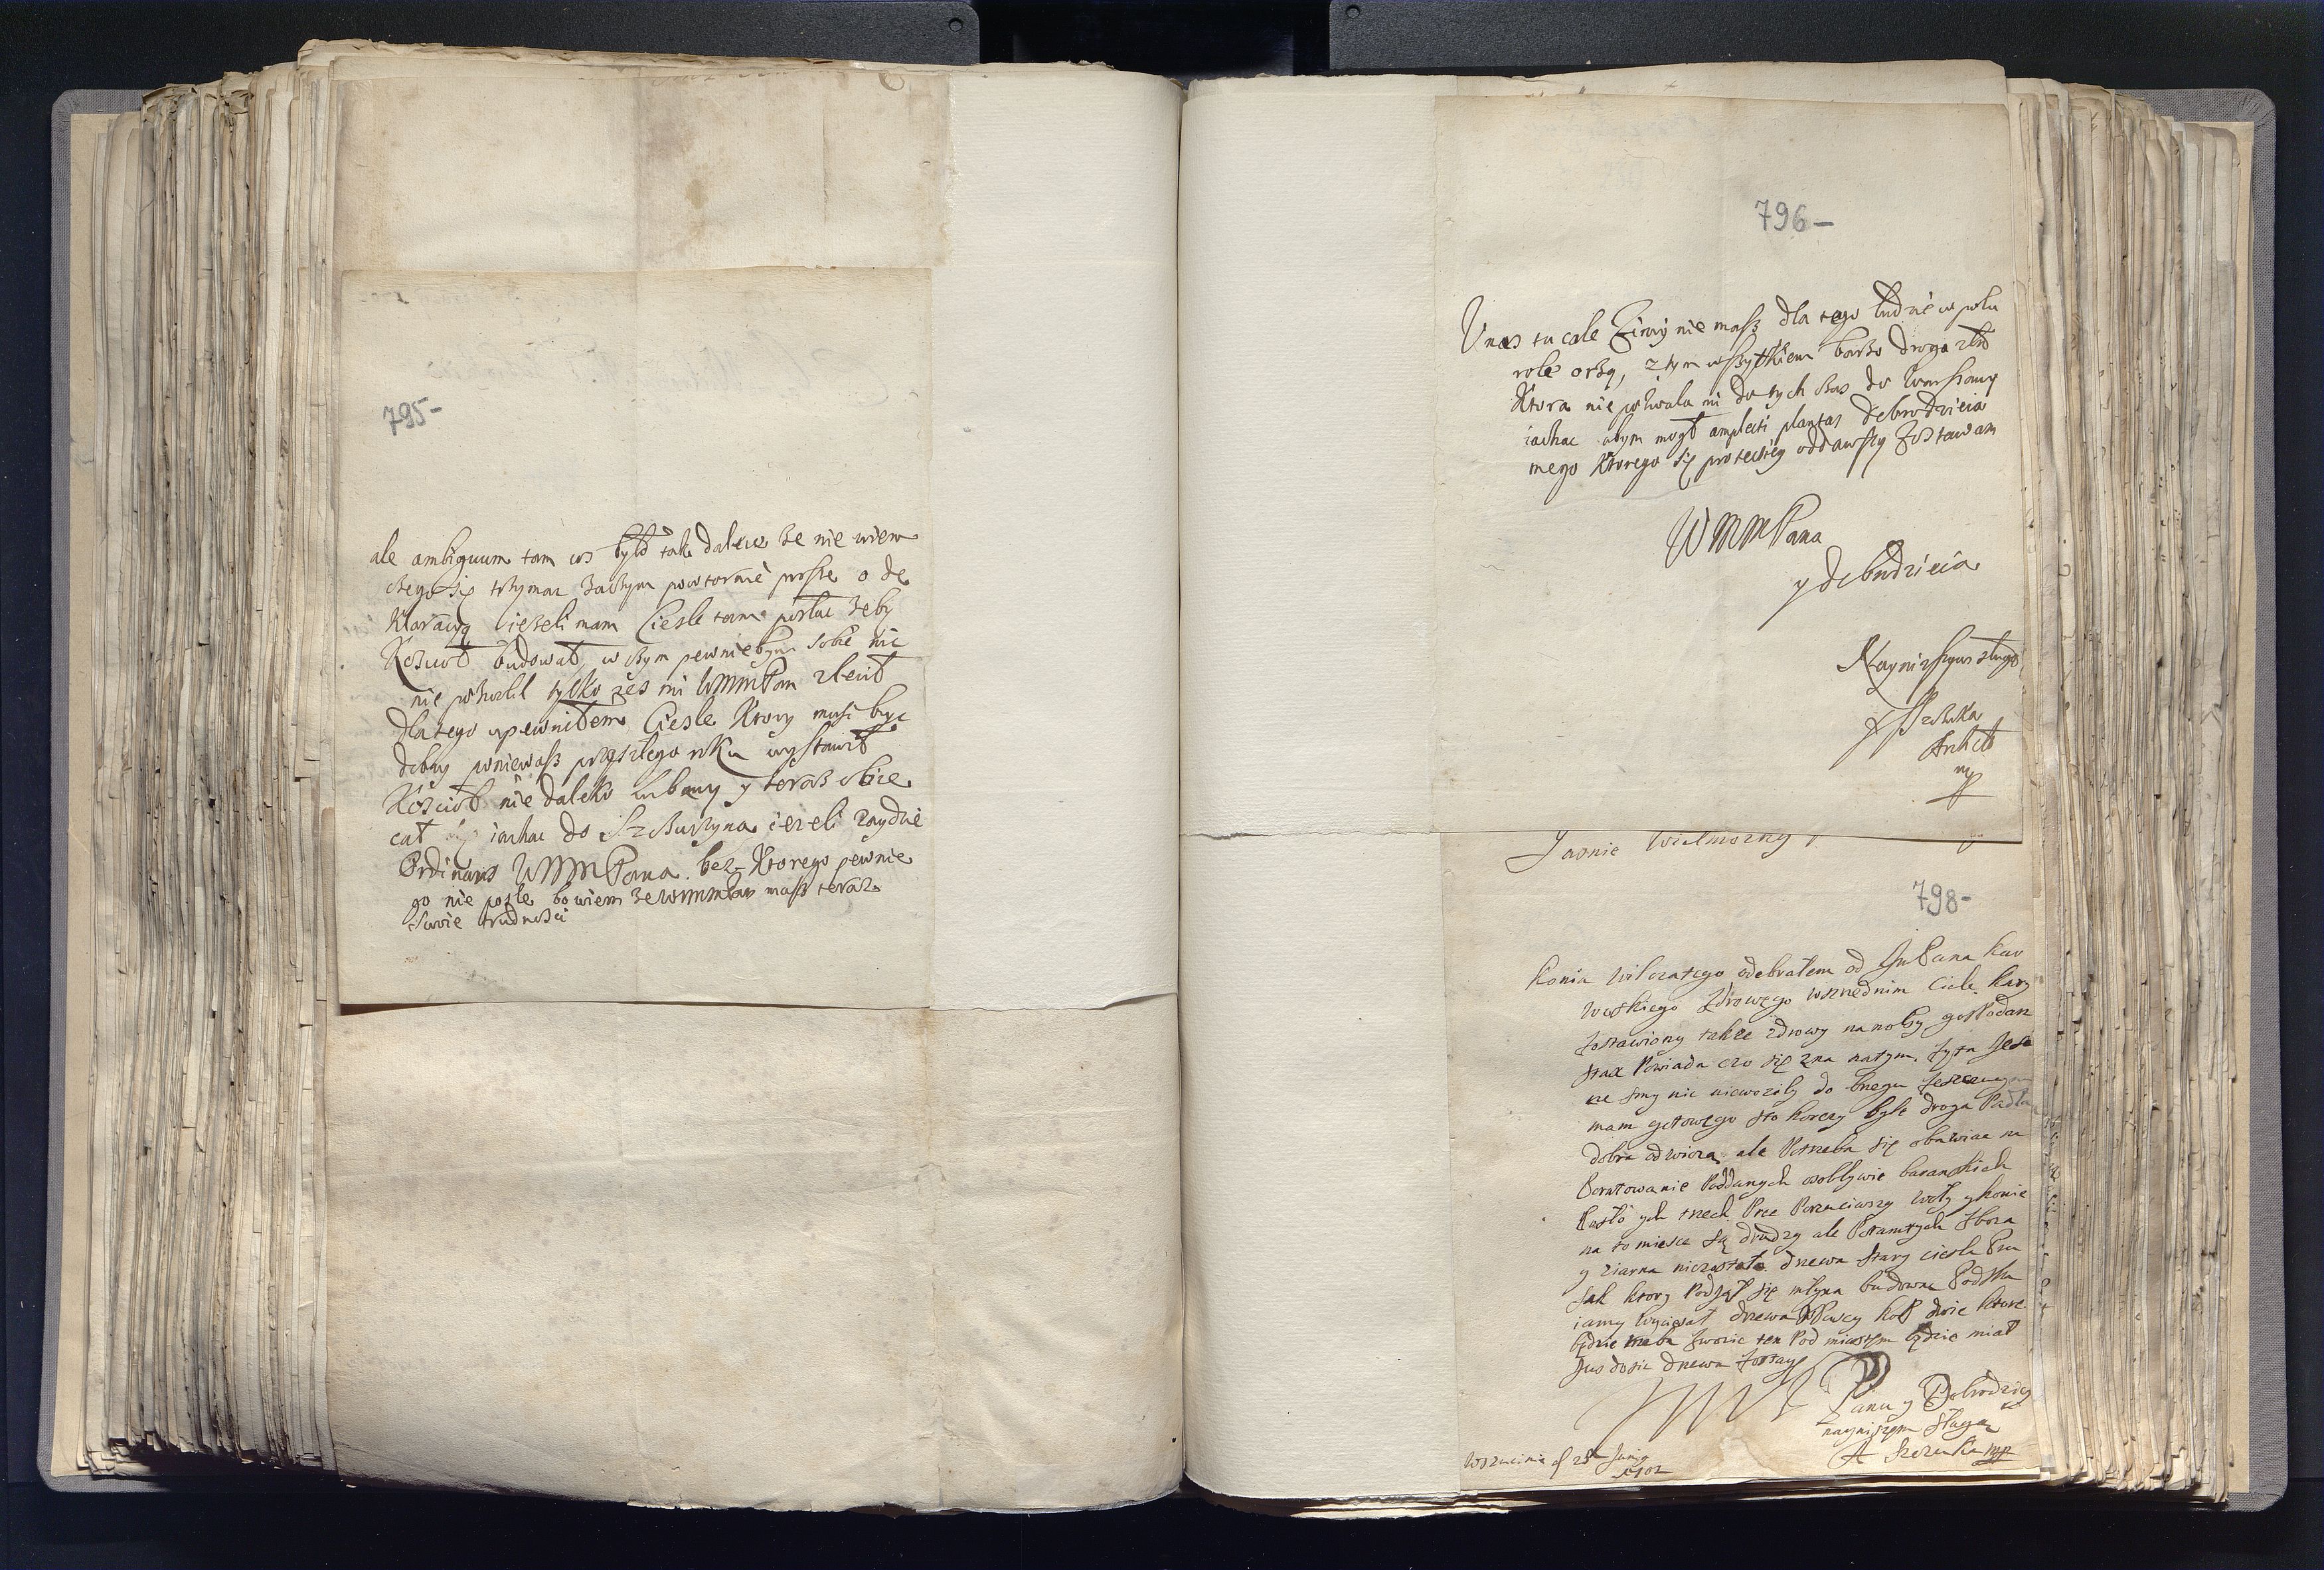 795-
ale ambiguum tam cos było tak dalece że nie wiem
czego się trzymac zaczym powtornie prosze o de
klaracyą ieżeli mam Ciesle tam posłac żeby
Koscioł budował, w czym pewnie bym sobie nic
nie pozwolił tylko żes mi WMMPan zlecił
dlatego upewniłem Ciesle ktory musi byc
dobry poniewasz przeszłego roku wystawił
Kościoł nie daleko y teraz obie
cał iachac do Szczuczyna ieżeli zaydzie
Ordinans WMMPana. bez ktorego pewnie
go nie posle bo wiem że WMMPan masz teraz
swoie trudnosci
796-
U nas tu cale Zimy nie masz dla tego ludzie w polu
role orzą, z tym wszytkiem barzo droga zła
Ktora nie pozwala mi do tych czas do Warszawy
iachac abym mogł amplecti plantas dobrodzieia
mego ktorego się protectiey oddawszy zostawam
WMMPana
y dobrodzieia
Nayniższym sługą
Szczuka
mp
Jasnie Wielmozny
798-
Konia wilczatego odebrałem od JmPana Kur
zdrowego wsrzednim ciele kary
zostawiony także zdrowy na nogi gospodarz
Powiada czo się zna natym. żyta Jesz
cze smy nic niewozily do bregu
mam gotowego sto korczy byle droga Padła
dobra odwiozą ale Potrzeba się obawiac na
Poratowanie Poddanych osobliwie baranskich
Poszło ych trzech Precz Porzuciwszy woły y konie
na to miesce są drudzy ale Potamtych zboza
y ziarna niezostało. drzewa stary ciesla Pru
sak ktory Podjął się młyna budowac
iamy wyciesał drzewa kop dwie ktore
będzie trzeba zwozic ten Pod miastem będzie miał
Jus dosic drzewa
Panu y Dobrodziey
nayniszym sługą
A Szczuka mp
d 28 Juny
1702